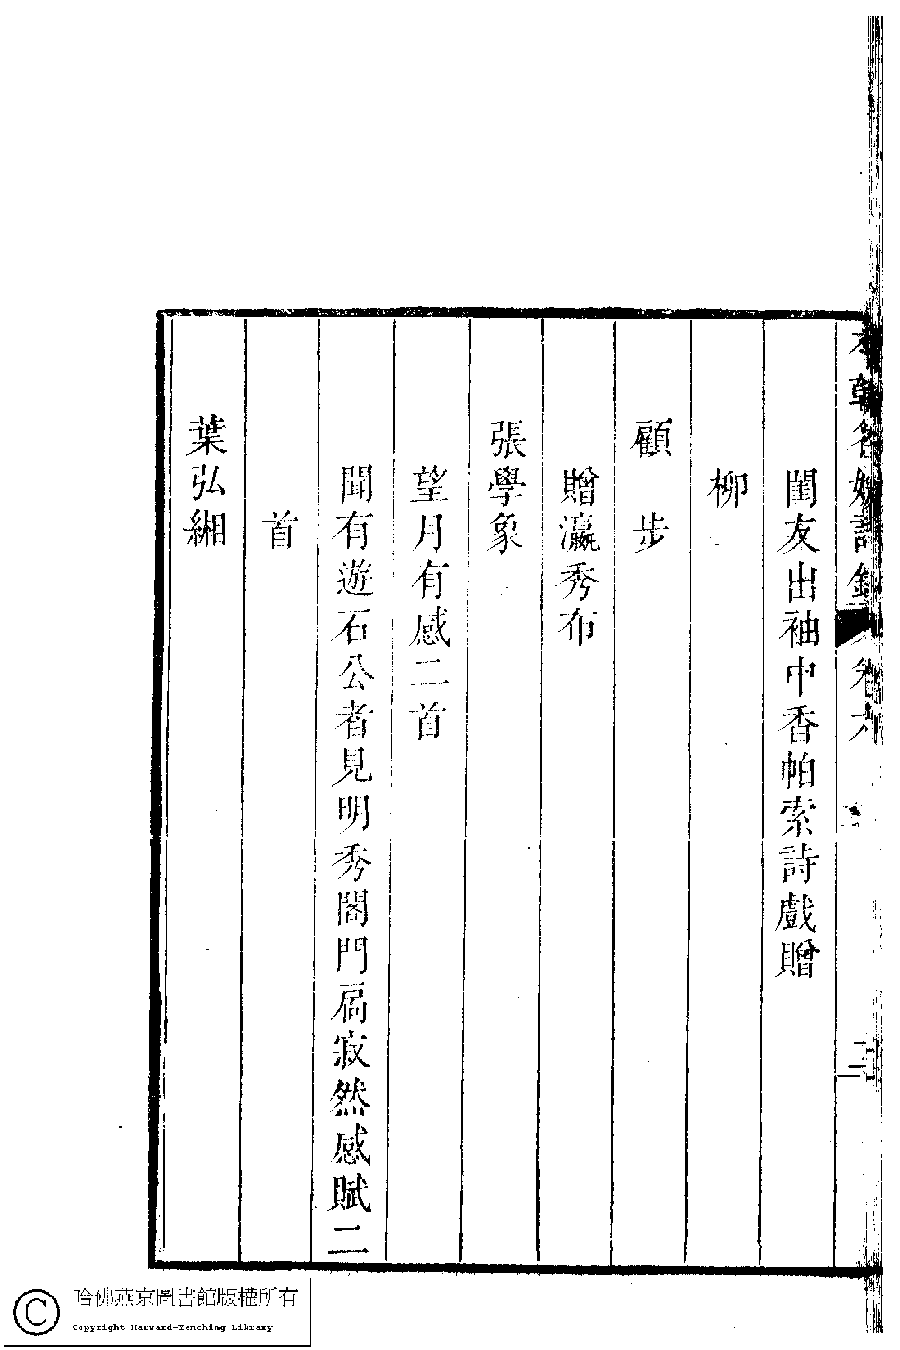 本朝名媛詩鈔 卷六
閨友出袖中香帕索詩戲贈
柳
顧步
贈瀛秀布
張學象
望月有感二首
聞有遊石公者見明秀閣門扃寂然感賦二
首
葉弘緗
哈佛燕京圖書館版權所有
Copyright Harvard-Yenching Library